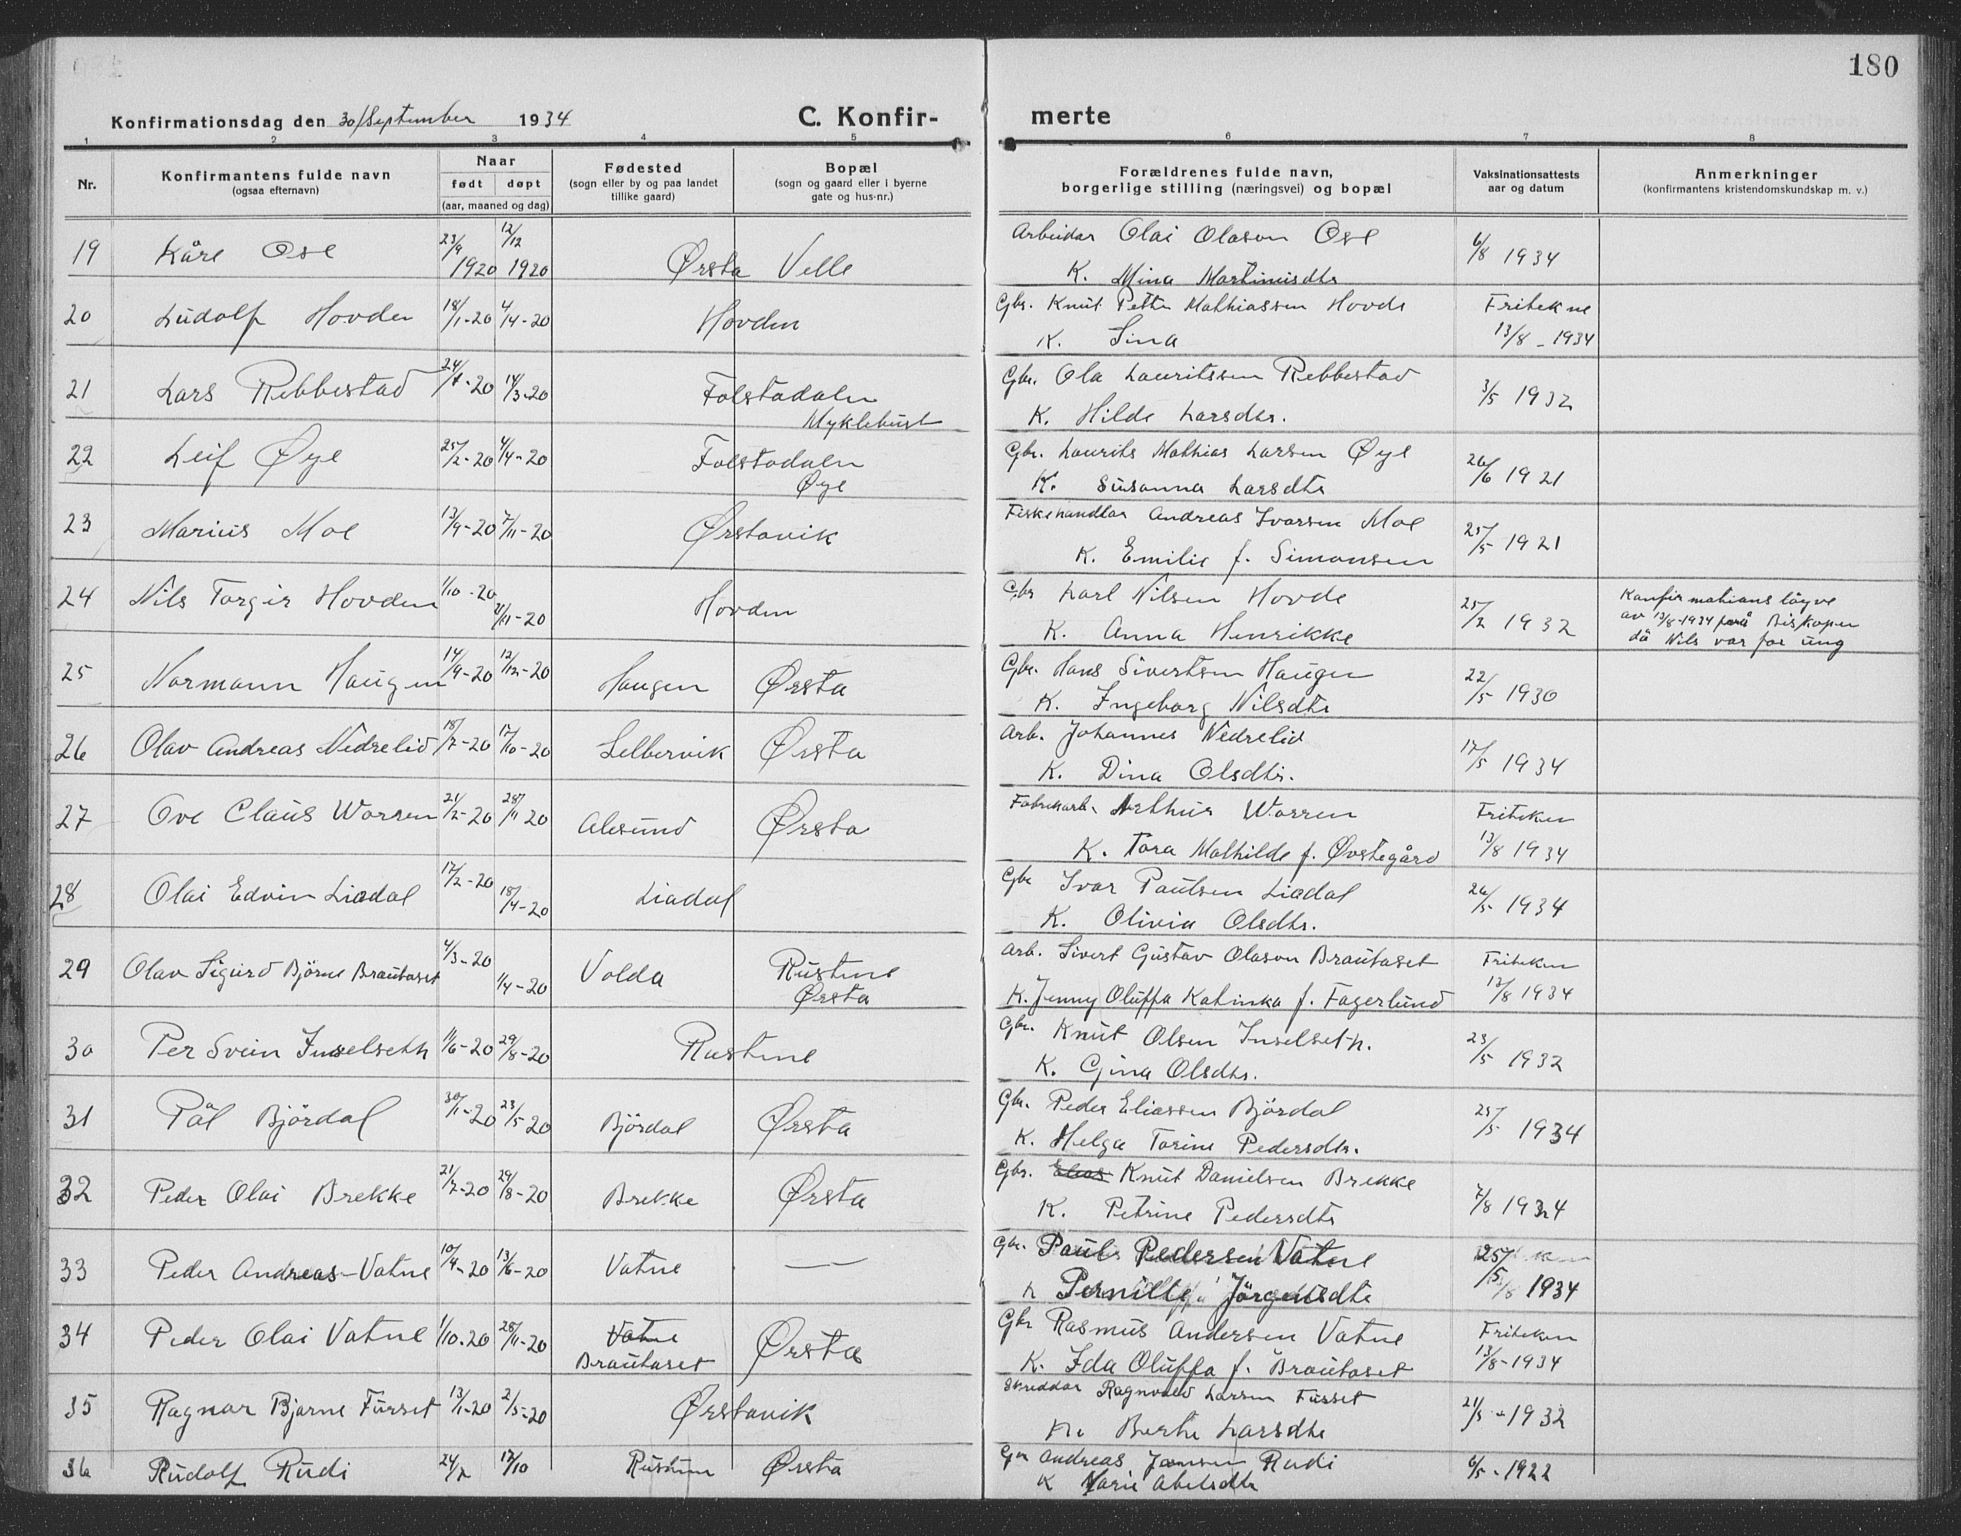 180
Konfirmationsdag den 30/September 1934 C. Konfirmerte
1 2 3 4 5 6 7 8
Nr. Konfirmantens fulde navn (ogsaa efternavn) Naar født døpt (aar, maaned og dag) Fødested (sogn eller by og paa landet tillike gaard) Bopæl (sogn og gaard eller i byerne gate og hus-nr.) Forældrenes fulde navn, borgerlige stilling (næringsvei) og bopæl Vaksinationsattests aar og datum Anmerkninger (konfirmantens kristendomskundskap m. v.)
19 Kåre Ose 23/9 1920 12/12 1920 Ørsta Velle Arbeidar Olai Olason Ose 6/8 1934
K. Mina Martinusdtr
20 Ludolf Hovden 18/1-20 4/4-20 Hovden Gbr. Knut Petter Mathiassen Hovde Friteken
K. Sina 13/8-1934
21 Lars Rebbestad 24/1-20 14/3-20 Folstadalen Gbr. Ola Lauritssen Rebbestad 3/5 1932
Myklebust K. Hilde Larsdtr.
22 Leif Øye 25/2-20 4/4-20 Folstadalen Gbr. Laurits Mathias Larsen Øye 26/6 1921
Øye K. Susanna Larsdtr
23 Marius Moe 13/9-20 7/11-20 Ørstavik Fiskehandlar Andreas Ivarsen Moe 25/5 1921
K. Emilie f. Simonsen
24 Nils Torgir Hovden 1/10-20 21/11-20 Hovden Gbr Karl Nilsen Hovde 25/2 1932 Konfirmations løyve
K. Anna Henrikke av 13/8-1934 frå Biskopen
då Nils var for ung
25 Normann Haugen 14/9-20 12/12-20 Haugen Ørsta Gbr. Hans Sivertsen Haugen 22/5 1930
K. Ingeborg Nilsdtr
26 Olav Andreas Nedrelid 18/7-20 17/10-20 Selbervik Ørsta Arb. Johannes Nedrelid 17/5 1934
K. Dina Olsdtr.
27 Ove Claus Worren 21/2-20 28/11 20 Ålesund Ørsta Fabrikarb. Arthur Worren Friteken
K. Tora Mathilde f. Øvstegård 13/8 1934
28 Olai Edvin Liadal 17/2-20 18/4-20 Liadal Gbr Ivar Paulsen Liadal 26/5 1934
K. Olivia Olsdtr.
29 Olav Sigurd Bjørne Brautaset 4/3-20 1/4-20 Volda Rustene Arb. Sivert Gustav Olason Brautaset Friteken
Ørsta K. Jenny Oluffa Katinka f. Fagerlund 13/8 1934
30 Per Svein Inselseth 1/6-20 29/8-20 Rustene Gbr. Knut Olsen Inselseth. 23/5 1932
K. Gina Olsdtr.
31 Pål Bjørdal 30/1-20 23/5-20 Bjørdal Ørsta Gbr. Peder Eliassen Bjørdal 25/5 1934
K. Helga Torine Pedersdtr.
32 Peder Olai Brekke 21/7-20 29/8-20 Brekke Ørsta Gbr. Elias Knut Danielsen Brekke 7/8 1934
K. Petrine Pedersdtr
33 Peder Andreas Vatne 10/4-20 13/6-20 Vatne — Gbr. Paul Pedersen Vatne 25/5 1934
K Pernille Jørgensdtr
34 Peder Olai Vatne 1/10-20 28/11-20 Vatne Ørsta Gbr Rasmus Andersen Vatne Friteken
Brautaset K. Ida Oluffa f. Brautaset 13/8-1934
35 Ragnar Bjarne Furset 13/1-20 2/5-20 Ørstavik Skreddar Ragnvald Larsen Furset 21/5-1932
K. Berte Larsdtr
36 Rudolf Rudi 24/7 17/10 Rustene Ørsta Gbr Andreas Jansen Rudi 6/5-1922
K Marie Abelsdtr